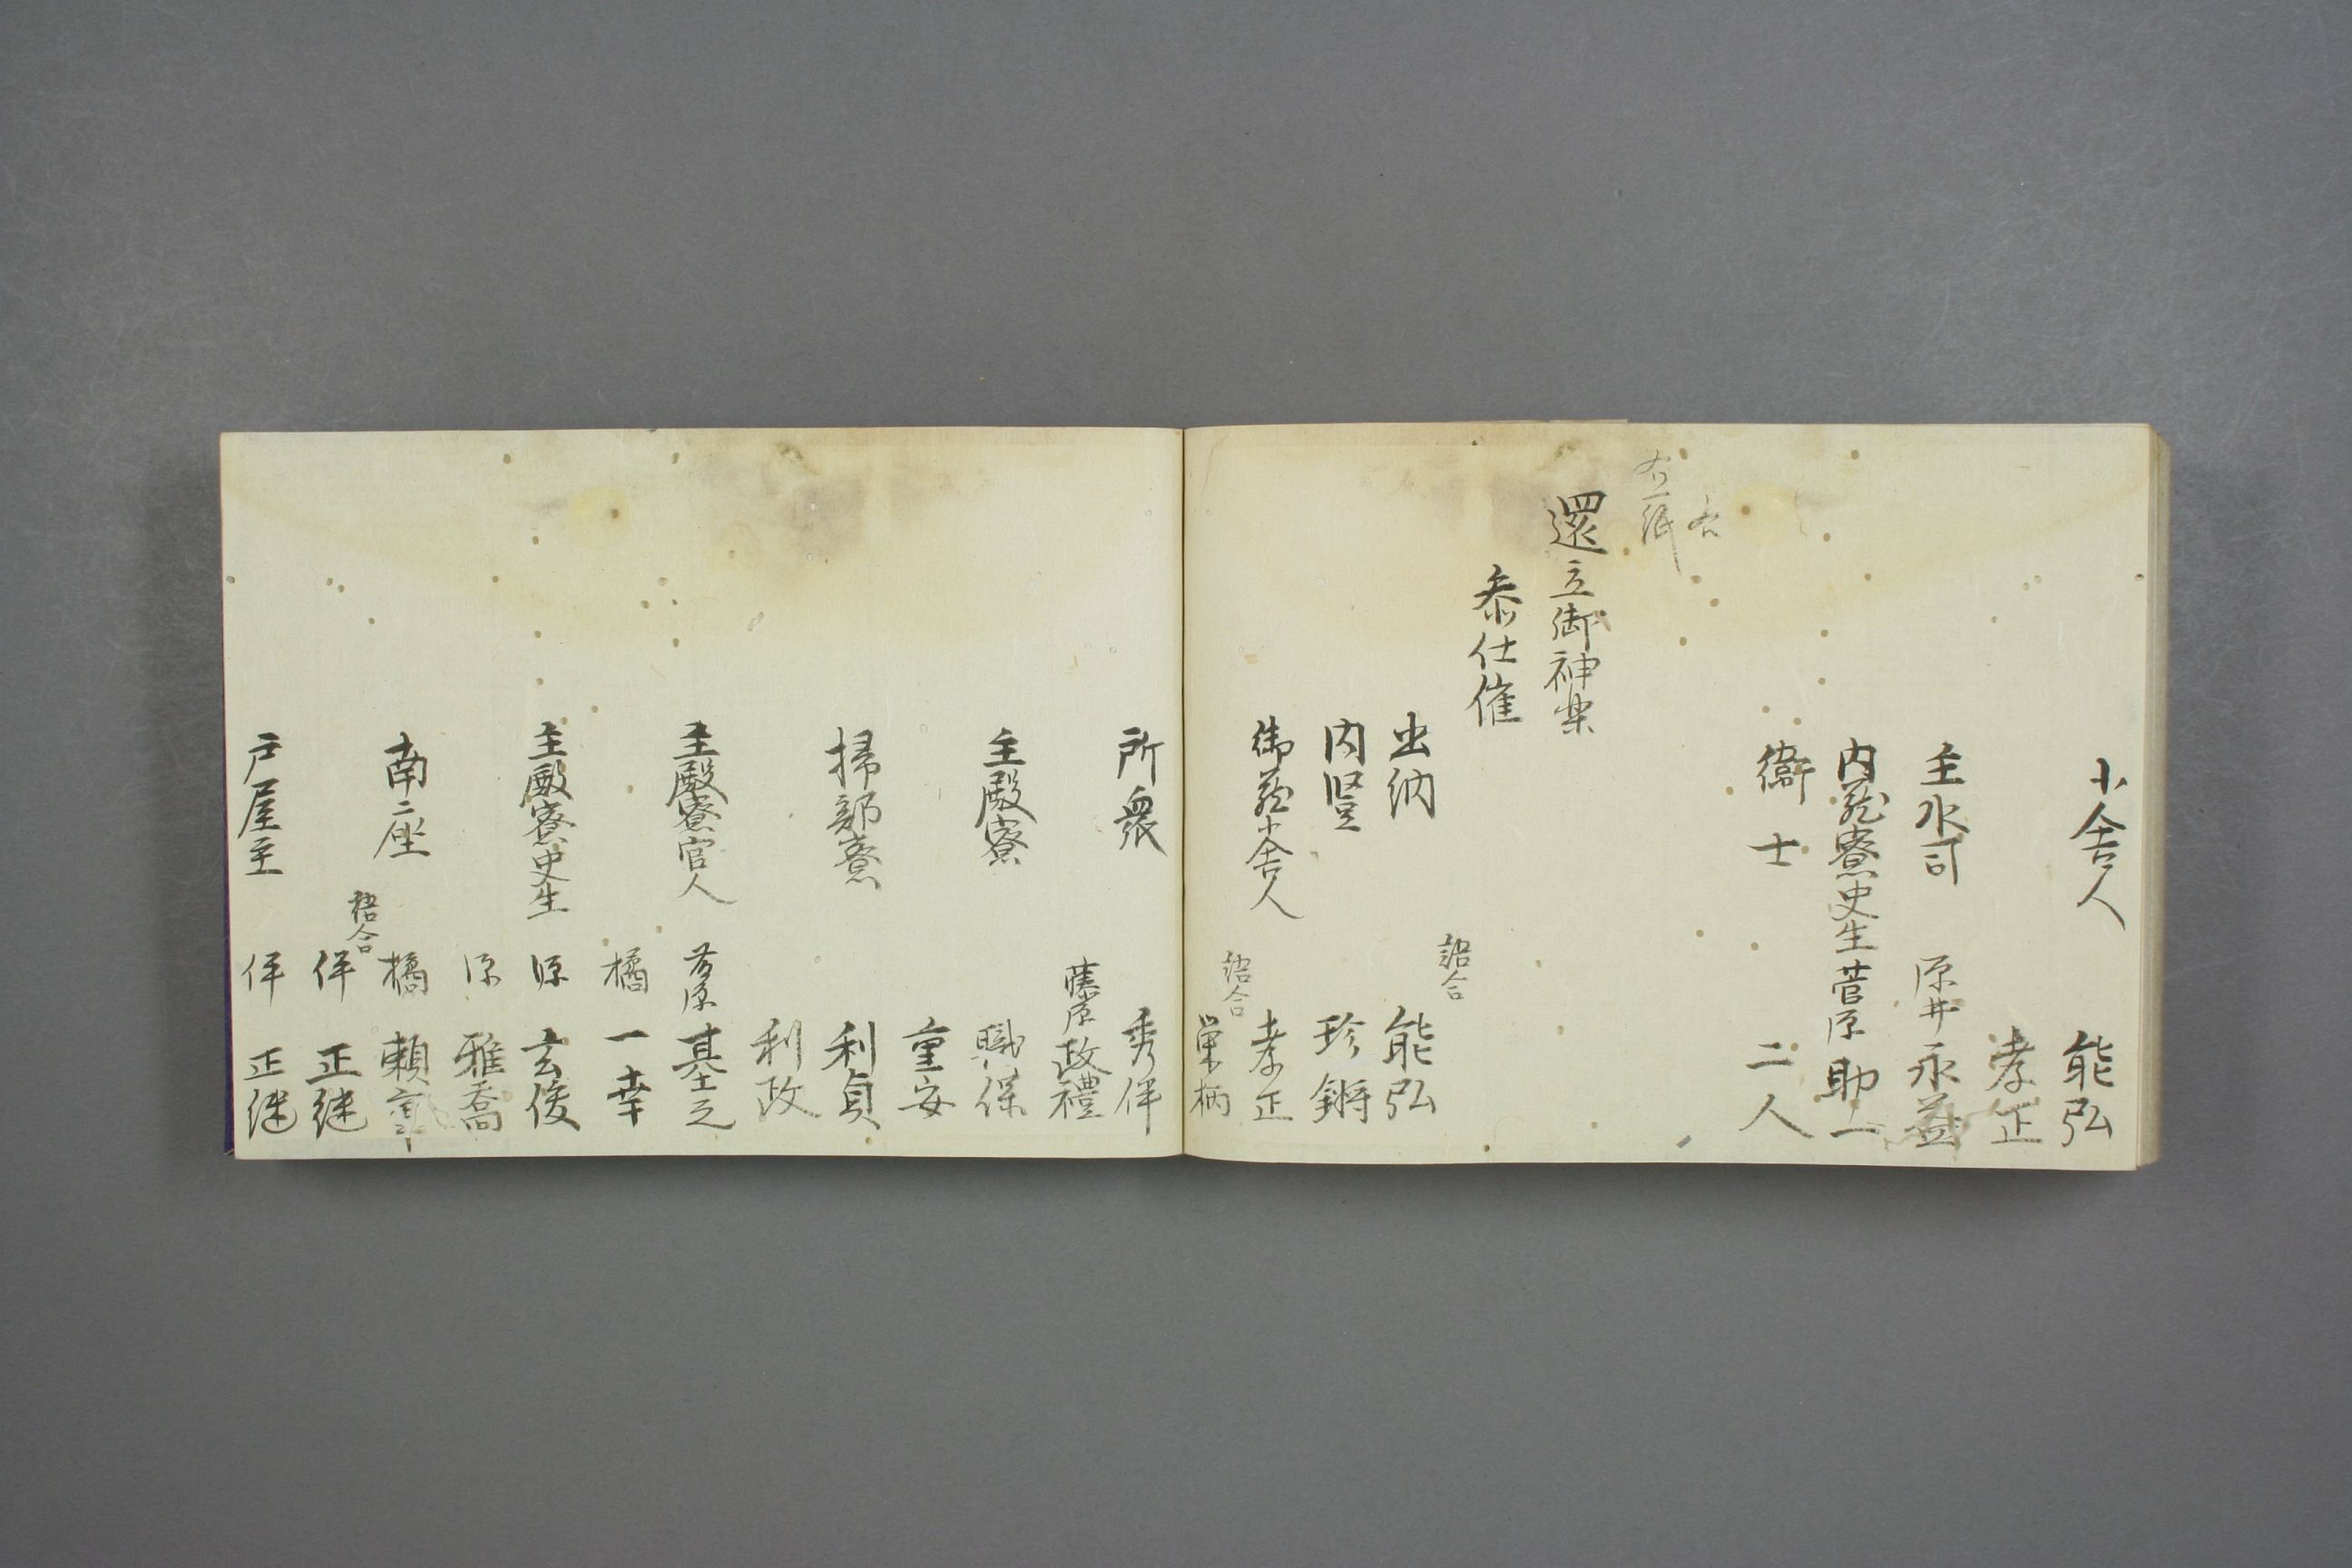 小舎人 能弘
孝正
主水司 源井 永益
内蔵寮史生 菅原 助一
衛士 二人
右
右一紙
還立御神楽
参仕催
詰合
出納 能弘
内豎 珍鏘
御蔵小舎人 孝正
詰合
栄柄
所衆 秀伴
藤原 政禮
主殿寮 職保
重安
掃部寮 利貞
利政
主殿寮官人 藤原 基之
橘 一幸
主殿寮史生 源 玄俊
源 雅喬
南座 橘 頼章
詰合
伴 正継
戸屋主 伴 正継